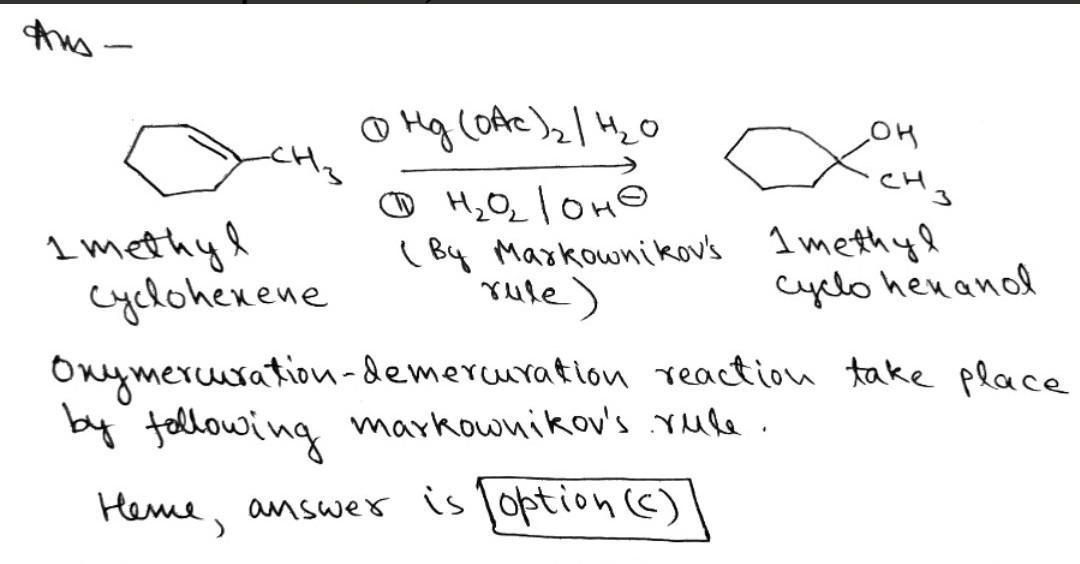 Ans -
① Hg(OAc)₂ / H₂O
OH
-CH₃
CH₃
Ⓘ H₂O₂ / OH⊖
1 methyl
(By Markownikov's
1 methyl
cyclohexene
rule)
cyclo hexanol
Oxymercuration-demercuration reaction take place
by following markownikov's rule.
Hence, answer is option (c)